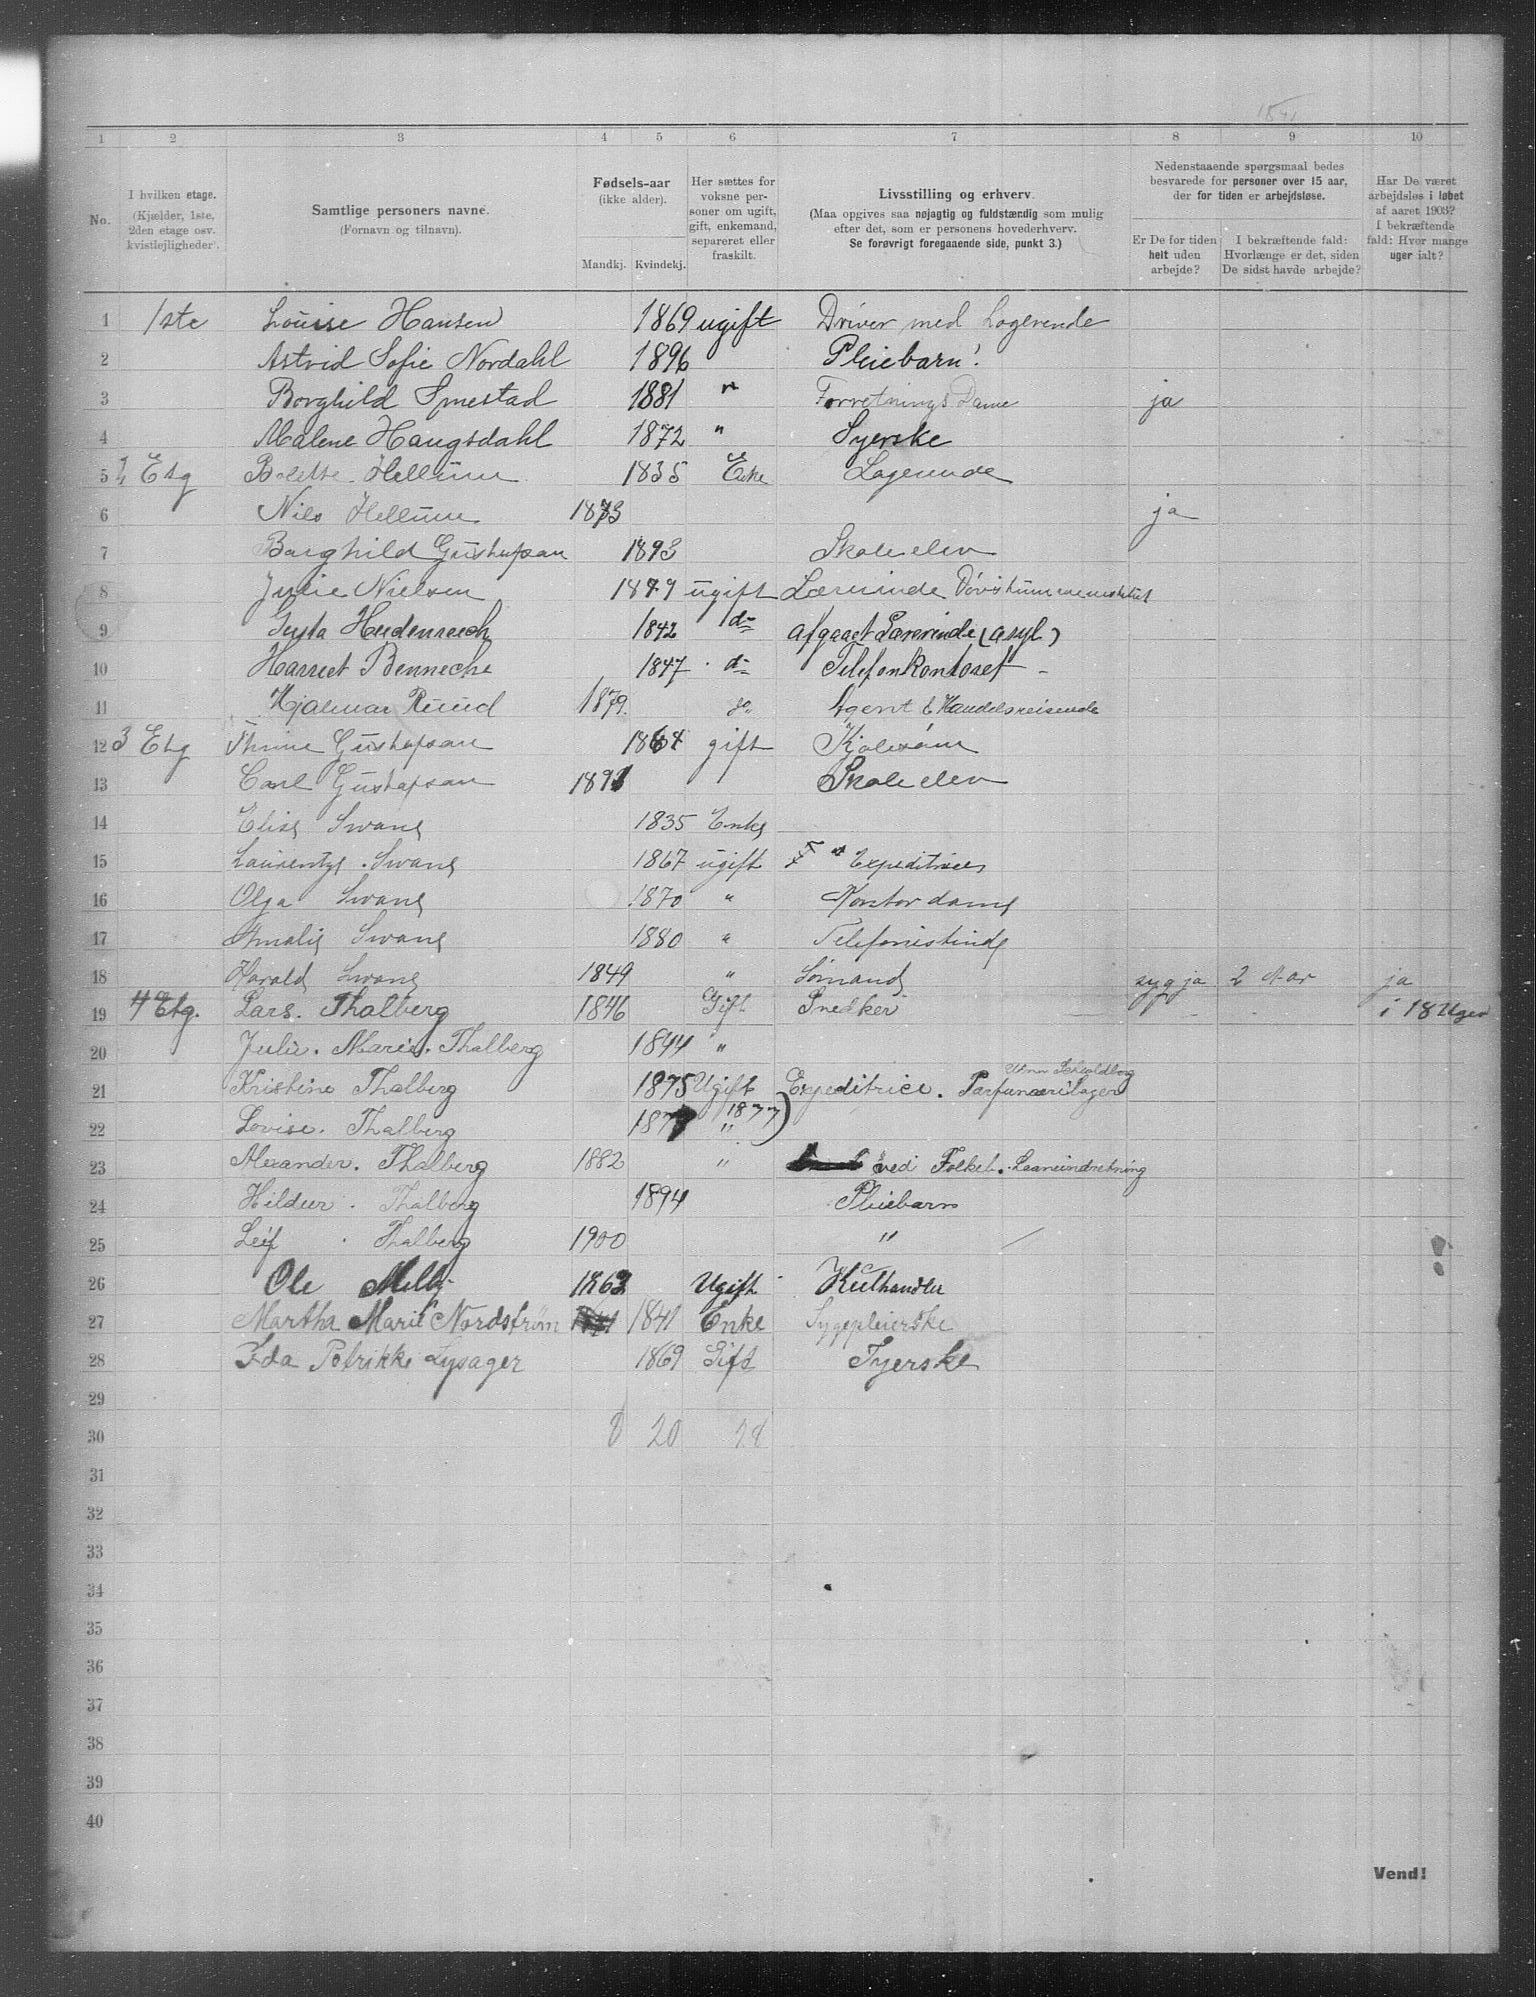 1 2 3 4 5 6 7 8 9 10
No.
I hvilken etage.
(Kjælder, 1ste,
2den etage osv.
kvistleiligheder).
Samtlige personers navne.
(Fornavn og tilnavn).
Fødsels-aar
(ikke alder).
Mandkj. Kvindekj.
Her sættes for
voksne per-
soner om ugift,
gift, enkemand,
separeret eller
fraskilt.
Livsstilling og erhverv.
(Maa opgives saa nøjagtig og fuldstændig som mulig
efter det, som er personens hovederhverv.
Se forøvrigt foregaaende side, punkt 3.)
Nedenstaaende spørgsmaal bedes
besvarede for personer over 15 aar,
der for tiden er arbejdsløse.
Er De for tiden
helt uden
arbejde?
I bekræftende fald:
Hvorlænge er det, siden
De sidst havde arbejde?
Har De været
arbejdsløs i løbet
af aaret 1903?
I bekræftende
fald: Hvor mange
uger ialt?
1 1ste Louise Hansen 1869 ugift Driver med Logerende
2 Astrid Sofie Nordahl 1896 Pleiebarn!
3 Borghild Smestad 1881 " Forretnings Dame ja
4 Malene Haugsdahl 1872 " Syerske
5 Etg Bolette Hellum 1835 Enke Logerende
6 Nils Hellum 1873 ja
7 Borghild Gustafsan 1893 Skole elev
8 Julie Nielsen ugift Lærerinde
9 Heidenreich 1842 do afgaaet Lærerinde (asyl)
10 Harriet Benneche 1847 do Telefonkontoret
11 Hjalmar Ruud 1879 do Agent & Handelsreisende
12 3 Etg Thrine Gustafsan gift Kjolesøm
13 Carl Gustafsan 1891 Skole elev
14 Elise Svane 1835 Enke
15 Svane 1867 ugift Expeditrice
16 Olga Svane 1870 " Kontor dame
17 Amalie Svane 1880 " Telefonistinde
18 Harald Svane 1849 " Sømand syg ja 2 Aar ja
19 4 Etg. Lars. Thalberg 1846 Gift Snedker i 18 Uger
20 Julie. Marie. Thalberg 1844 "
21 Kristine Thalberg 1875 Ugift Expeditrice. Parfumerilager
22 Lovise. Thalberg 1877 "
23 Alexander. Thalberg 1882 " ved Folket. Laaneindretning
24 Hildur. Thalberg 1894 Pleiebarn
25 Leif. Thalberg 1900 "
26 Ole Melby 1863 Ugift Kulhandler
27 Martha Marie Nordstrøm 1841 Enke Sygepleierske
28 Ida Petrikke Lysager 1869 Gift Syerske
29
30 8 20 28
31
32
33
34
35
36
37
38
39
40
Vend!